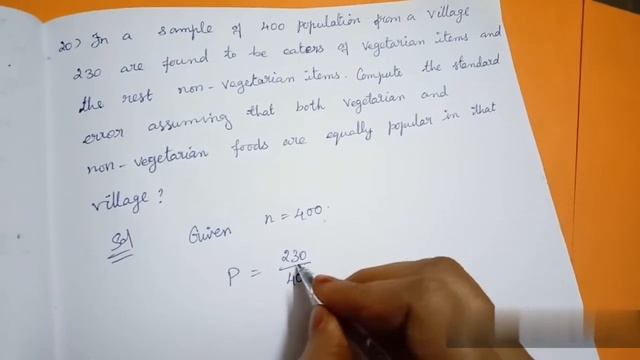 20) In a sample of 400 population from a village
230 are found to be eaters of vegetarian items and
the rest non-vegetarian items. Compute the standard
error assuming that both vegetarian and
non-vegetarian foods are equally popular in that
village?
Sol Given n = 400.
P = 230 / 40